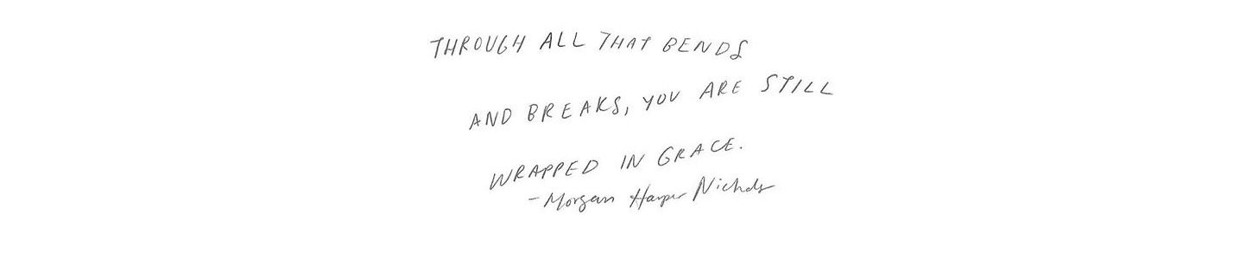 THROUGH ALL THAT BENDS
AND BREAKS, YOU ARE STILL
WRAPPED IN GRACE.
- Morgan Harper Nichols